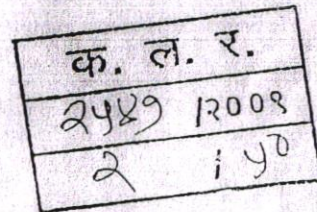 क. ल. र.
२५४७ /२००१
२ / ५०